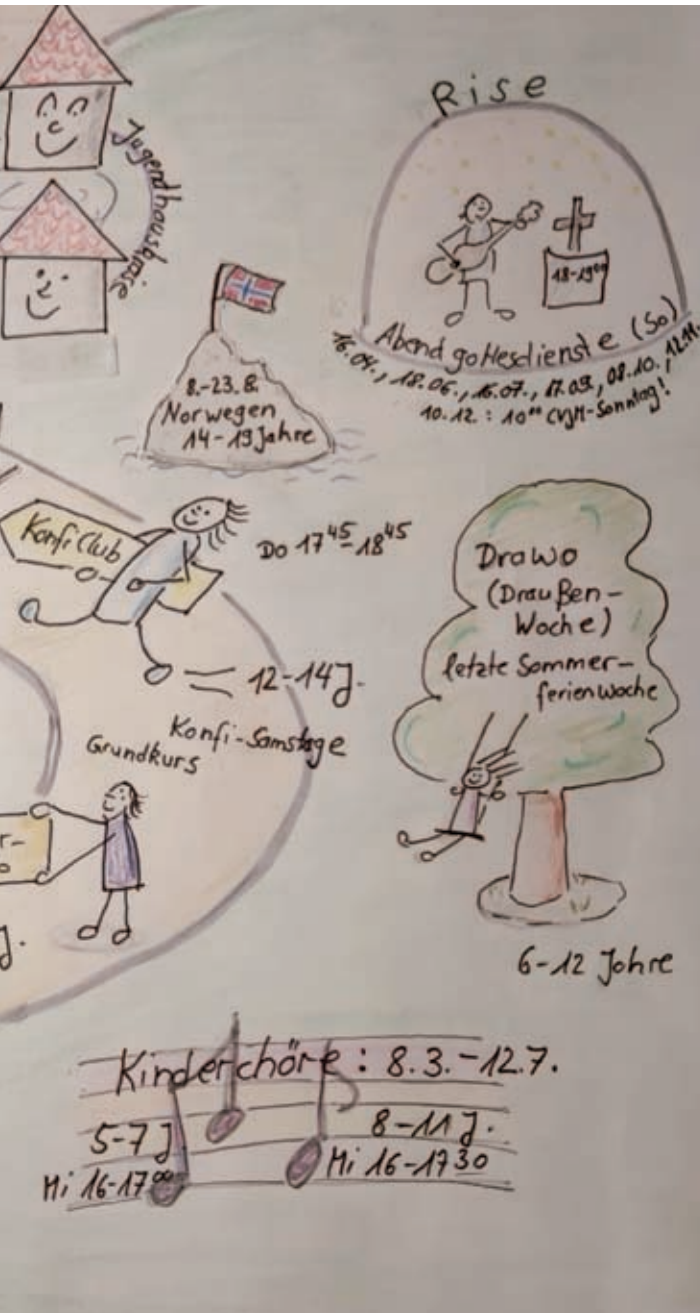 Rise
Jugendhauskreise
18-19⁰⁰
Abendgottesdienste (So)
16.04., 18.06., 16.07., 17.09., 08.10., 12.11.
10.12. : 10⁰⁰ CVJM-Sonntag!
8.-23.8.
Norwegen
14-19 Jahre
KonfiClub
Do 17⁴⁵-18⁴⁵
12-14 J.
Konfi-Samstage
Grundkurs
Drawo
(Draußen-
Woche)
letzte Sommer-
ferienwoche
6-12 Jahre
J.
Kinderchöre : 8.3.-12.7.
5-7 J.
Mi 16-17⁰⁰
8-11 J.
Mi 16-17 30